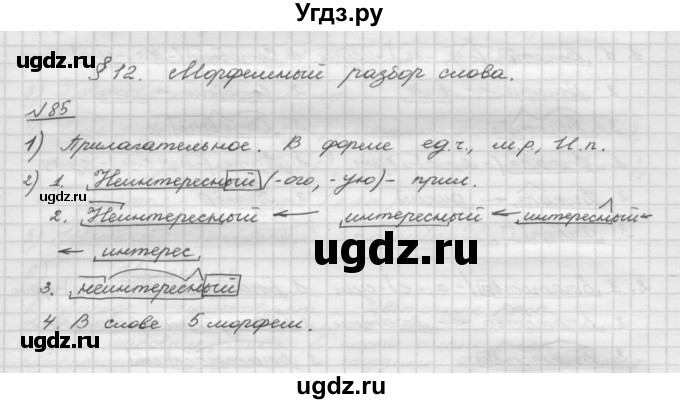 Угдз.ру
ugdz.ru
§ 12. Морфемный разбор слова.
№85
1) Прилагательное. В форме ед.ч., м.р., И.п.
2) 1. Неинтересный (-ого, -ую) - прил.
2. Неинтересный ← интересный ← интересный ←
← интерес
ugdz.ru
3. неинтересный
4. В слове 5 морфем.
ugdz.ru
ugdz.ru